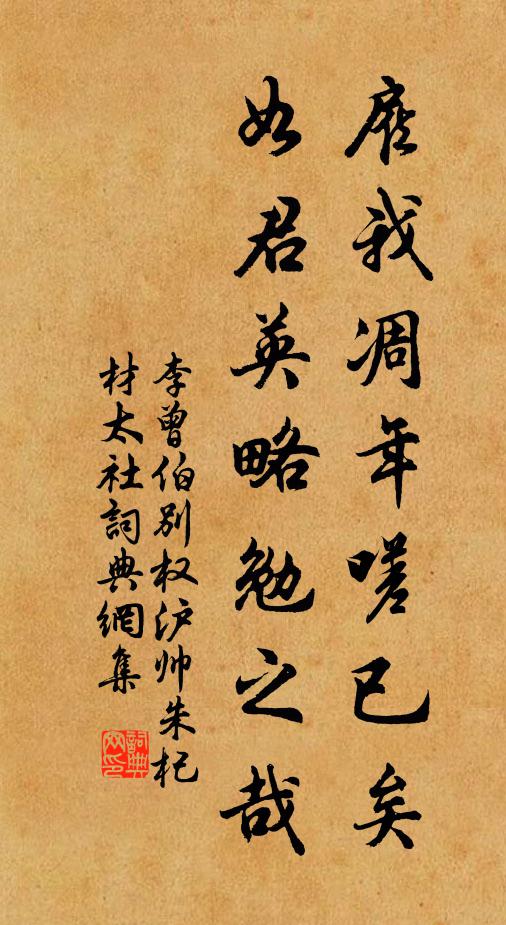 顾我凋年嗟已矣
如君英略勉之哉
李曾伯别权泸帅朱杞
材太社詞典網集
詞典
网印